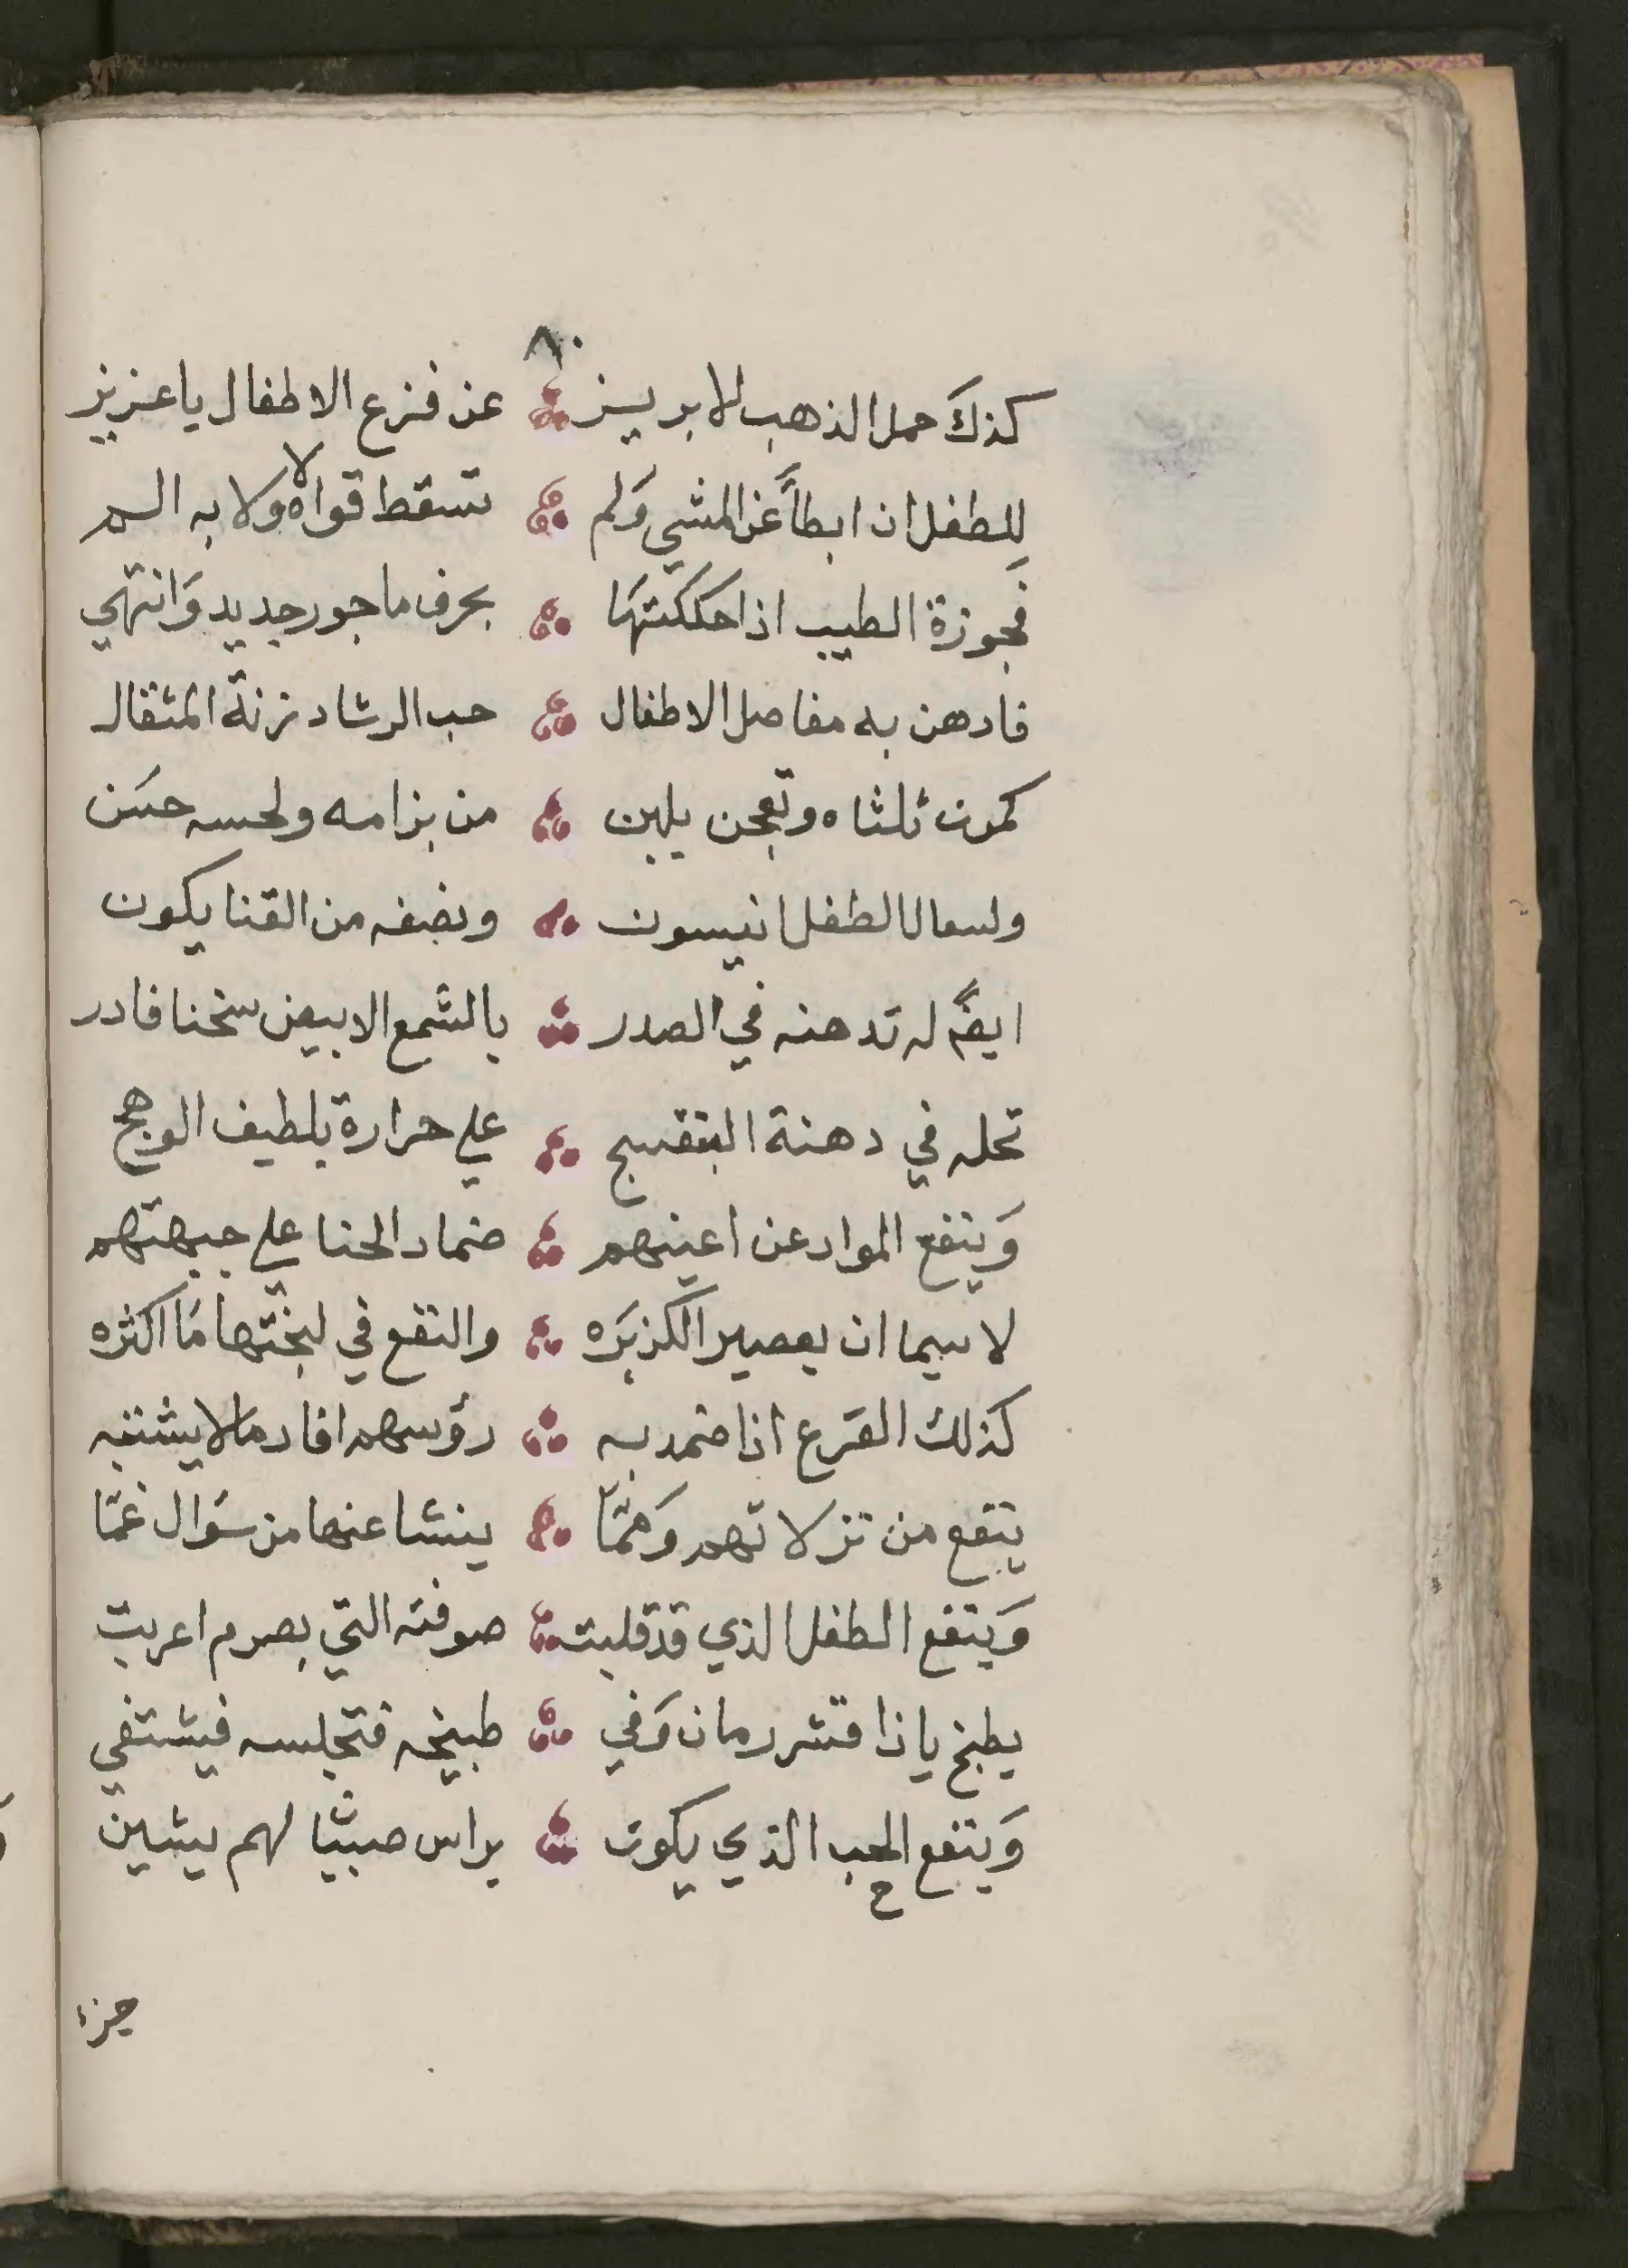 ٨٠
كذكَ حمل الذهب للابريز عن فزع الاطفال يا عزيز
لِلطفل ان ابطأَ عَن المشي وَلم تسقط قواه ولا به الم
فَجوزة الطيب اذا حككتهَا بحرف ماجور جديد وَانتهي
فادهن به مفاصل الاطفال حب الرشاد زنة المثقال
كمون ثلثاه وتعجن بلبن من بز امه ولحسه حسَن
ولسعال الطفل انيسون ونصفه من القنا يكون
ايضًا له تدهنه في الصدر بالشمع الابيض سخنا فادر
تحله في دهنة البنفسج علي حرارة بلطيف الوهج
وَينفع الموادر عن اعينهم ضماد الحنا علي جبهتهم
لا سيما ان بعصير الكزبَره والنفع في لبختها مَا اكثره
كذلك القرع اذا ضمد به رؤسهم افاد مالا يشتبه
ينفع من نزلاتهم وَممَّا ينشا عنها من سؤال غمَّا
وَينفع الطفل الذي قد قلبت صوفته التي بصرم اعربت
يطبخ يا ذا قشر رمان وَفي طبيخه فتجلسه فيشتفي
وَينفع الحب الذي يكون براس صبيا لهم يشين
ح
جزء